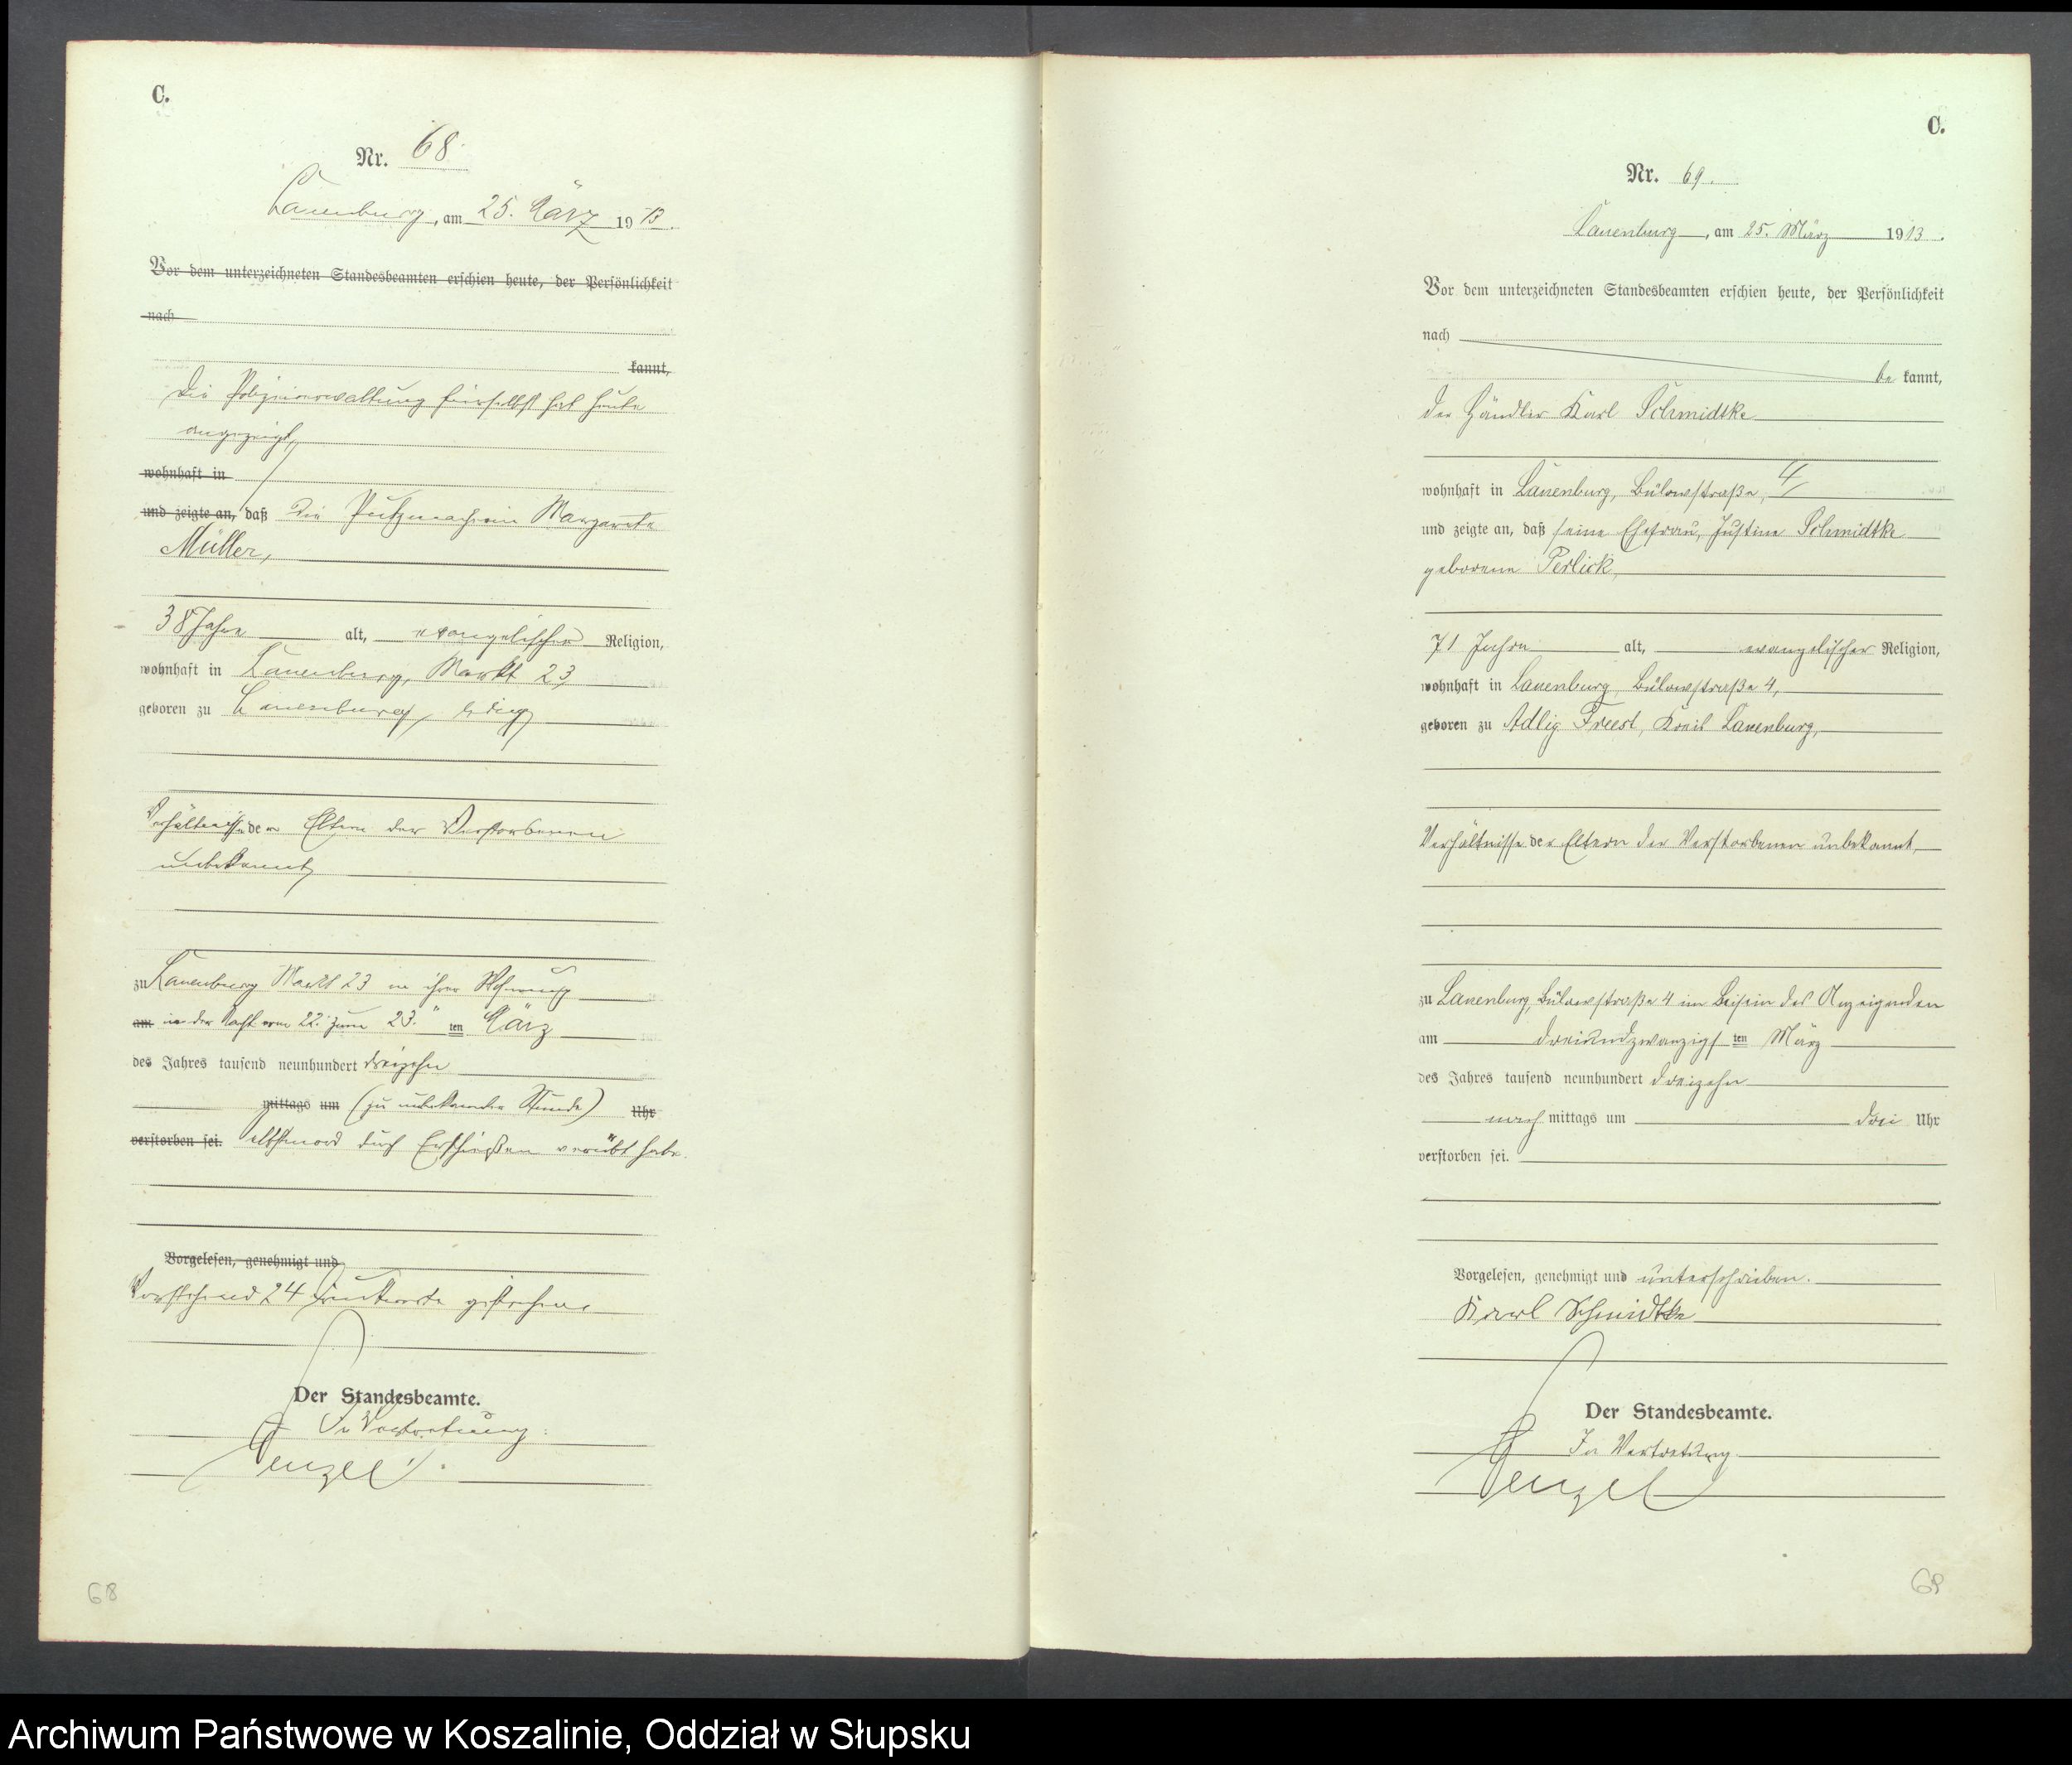 C.
Nr. 68.
Lauenburg, am 25. März 1913.
Vor dem unterzeichneten Standesbeamten erschien heute, der Persönlichkeit
nach
kannt,
Die Polizeiverwaltung hierselbst hat heute
angezeigt,
wohnhaft in
und zeigte an, daß die Putzmacherin Margarete
Müller,
38 Jahre alt, evangelischer Religion,
wohnhaft in Lauenburg, Markt 23,
geboren zu Lauenburg, ledig,
Verhältnisse der Eltern der Verstorbenen
unbekannt,
zu Lauenburg Markt 23 in ihrer Wohnung
am in der Nacht vom 22. zum 23. ten März
des Jahres tausend neunhundert dreizehn
mittags um (zu unbekannter Stunde) Uhr
verstorben sei. Selbstmord durch Erschießen verübt habe.
Vorgelesen, genehmigt und
Vorstehend 24 Druckworte gestrichen.
Der Standesbeamte.
In Vertretung:
C.
Nr. 69.
Lauenburg, am 25. März 1913.
Vor dem unterzeichneten Standesbeamten erschien heute, der Persönlichkeit
nach
be kannt,
der Händler Karl Schmidtke
wohnhaft in Lauenburg, Bülowstraße, 4,
und zeigte an, daß seine Ehefrau, Justine Schmidtke
geborene Perlick,
71 Jahre alt, evangelischer Religion,
wohnhaft in Lauenburg Bülowstraße 4,
geboren zu Adlig Freest, Kreis Lauenburg,
Verhältnisse der Eltern der Verstorbenen unbekannt,
zu Lauenburg, Bülowstraße 4 im Beisein des Anzeigenden
am dreiundzwanzigsten März
des Jahres tausend neunhundert dreizehn
nach mittags um drei Uhr
verstorben sei.
Vorgelesen, genehmigt und unterschrieben.
Karl Schmidtke
Der Standesbeamte.
In Vertretung
68
69
Archiwum Państwowe w Koszalinie, Oddział w Słupsku